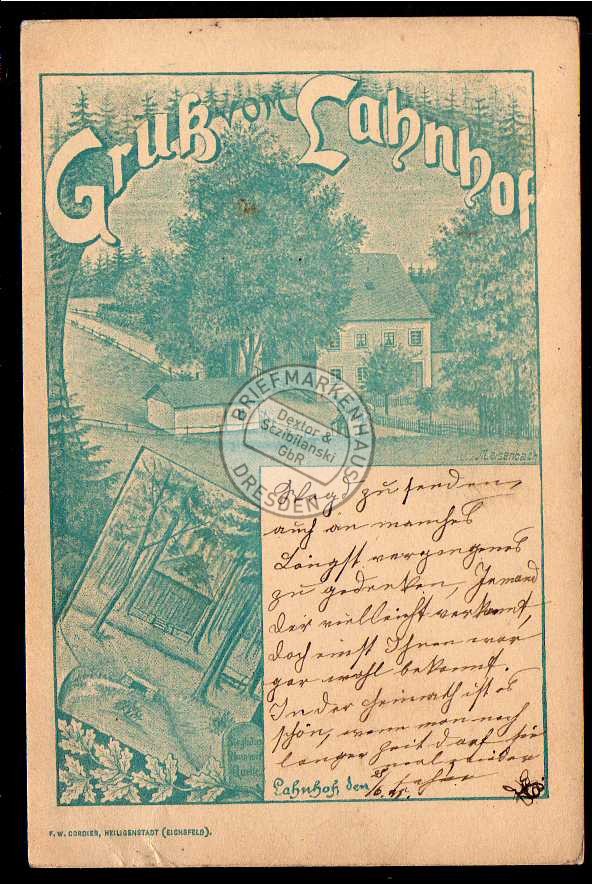 Gruß vom Lahnhof
BRIEFMARKENHAUS
Dextor &
Stzibilanski
GbR
DRESDEN
Meisenbach
zu senden,
auch an manches
Längst vergangenes
zu gedenken, Jemand
der vielleicht verkannt,
doch einst Ihnen war
gar wohl bekannt.
In der Heimath ist es
schön, wenn man nach
langer Zeit darf sie
mal wieder
sehen
Quelle
Lahnhof den
F. W. CORDIER, HEILIGENSTADT (EICHSFELD).